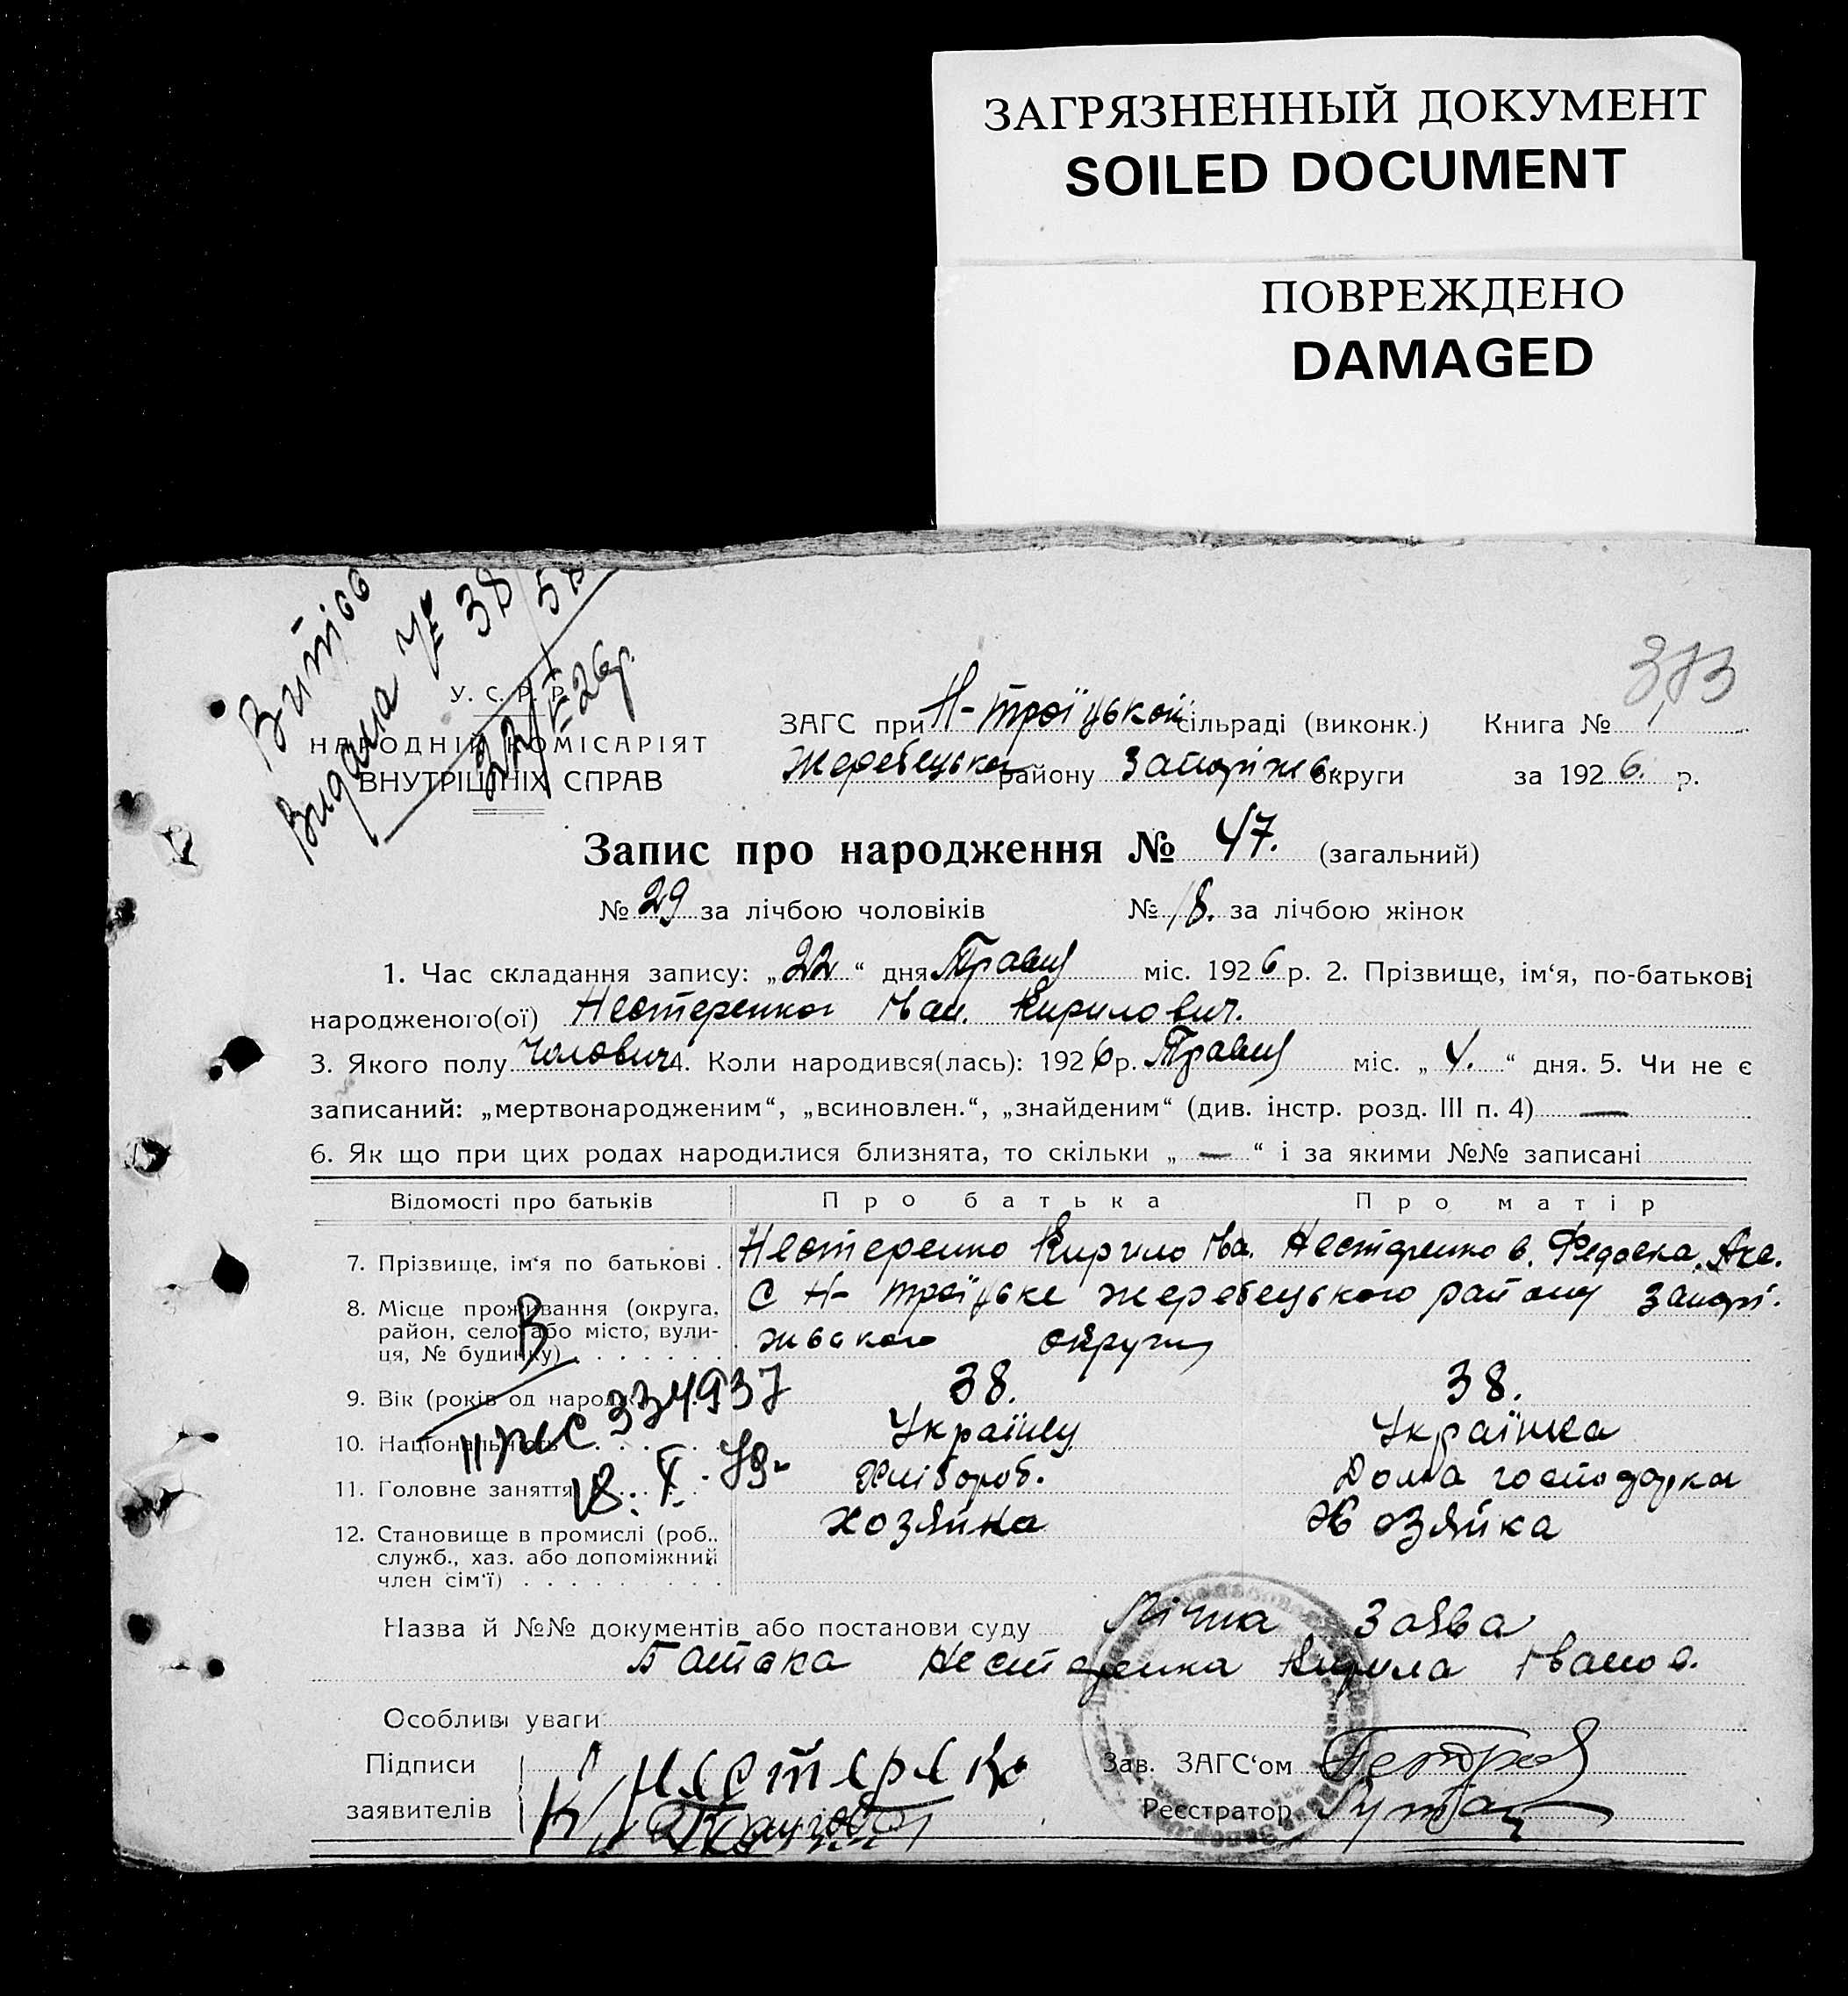 ЗАГРЯЗНЕННЫЙ ДОКУМЕНТ
SOILED DOCUMENT
ПОВРЕЖДЕНО
DAMAGED
Витяг
Видана № 38
22/V 26р.
313
У. С. Р. Р.
НАРОДНІЙ КОМІСАРІЯТ
ВНУТРІШНІХ СПРАВ
ЗАГС при Н-Троїцькой сільраді (виконк.) Книга № 1
Жеребецько району Запоріжс. округи за 1926. р.
Запис про народження № 47. (загальний)
№ 29 за лічбою чоловіків № 18. за лічбою жінок
1. Час складання запису: „22“ дня Травня міс. 1926 р. 2. Прізвище, ім‘я, по-батькові
народженого(ої) Нестеренко Іван Кирилович.
3. Якого полу Чолович 4. Коли народився(лась): 1926 р. Травня міс. „4.“ дня. 5. Чи не є
записаний: „мертвонародженим“, „всиновлен.“, „знайденим“ (див. інстр. розд. III п. 4) —
6. Як що при цих родах народилися близнята, то скільки „—“ і за якими №№ записані
Відомості про батьків Про батька Про матір
7. Прізвище, ім‘я по батькові . Нестеренко Кирило Іва. Нестеренков. Федоська Аке.
8. Місце проживання (округа, район, село або місто, вулиця, № будинку) С Н-Троїцьке жеребецького району Запорі-
жського округи
9. Вік (років од народж. 38. 38.
10. Національність Українец Українка
11. Головне заняття Хлібороб. Дома господарка
12. Становище в промислі (роб., Хозяйка Хозяйка
служб., хаз. або допоміжний
член сім‘ї)
В
334937
18. X. 79
Назва й №№ документів або постанови суду Лічна Заява
Батька Нестеренка Кирила Іванов.
Особливі уваги
Підписи К Нестеренко Зав. ЗАГС‘ом
заявителів Реєстратор